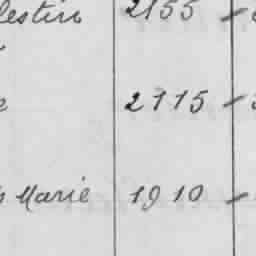 lestin 2155 -
2115 -
Marie 1910 -